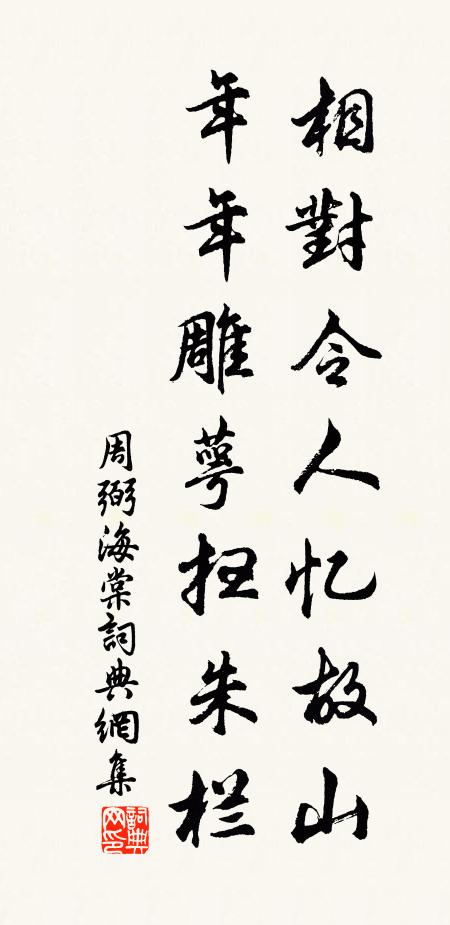 相對令人忆故山
年年雕萼抂朱栏
周弼海棠詞典網集
詞典网印